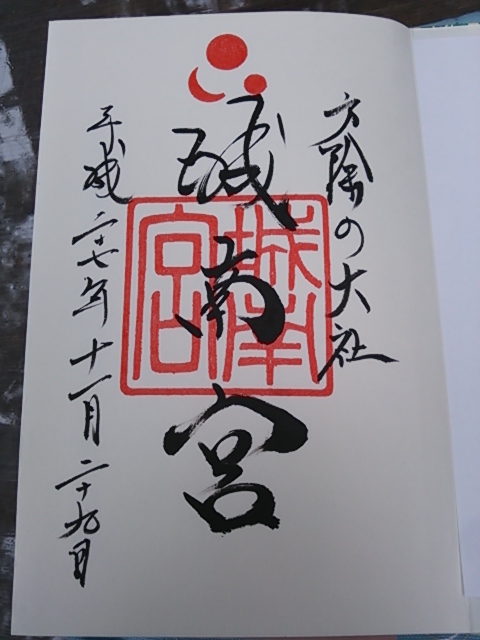 方除の大社
城南宮
城南宮
平成二十七年十一月二十九日